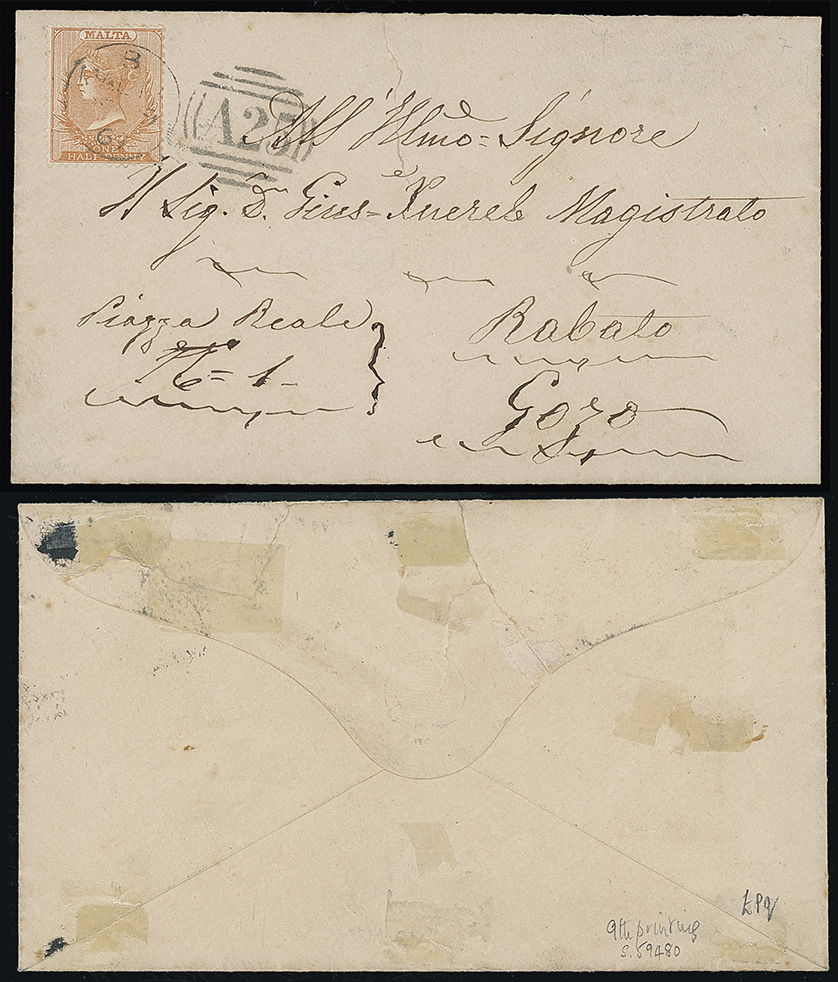 MALTA
ONE
HALF PENNY
A25
All' Illmo = Signore
Il Sig. Dn Gius = Magistrato
Piazza Reale
No = 1
Rabato
Gozo
£Pq
9th printing
S.59480